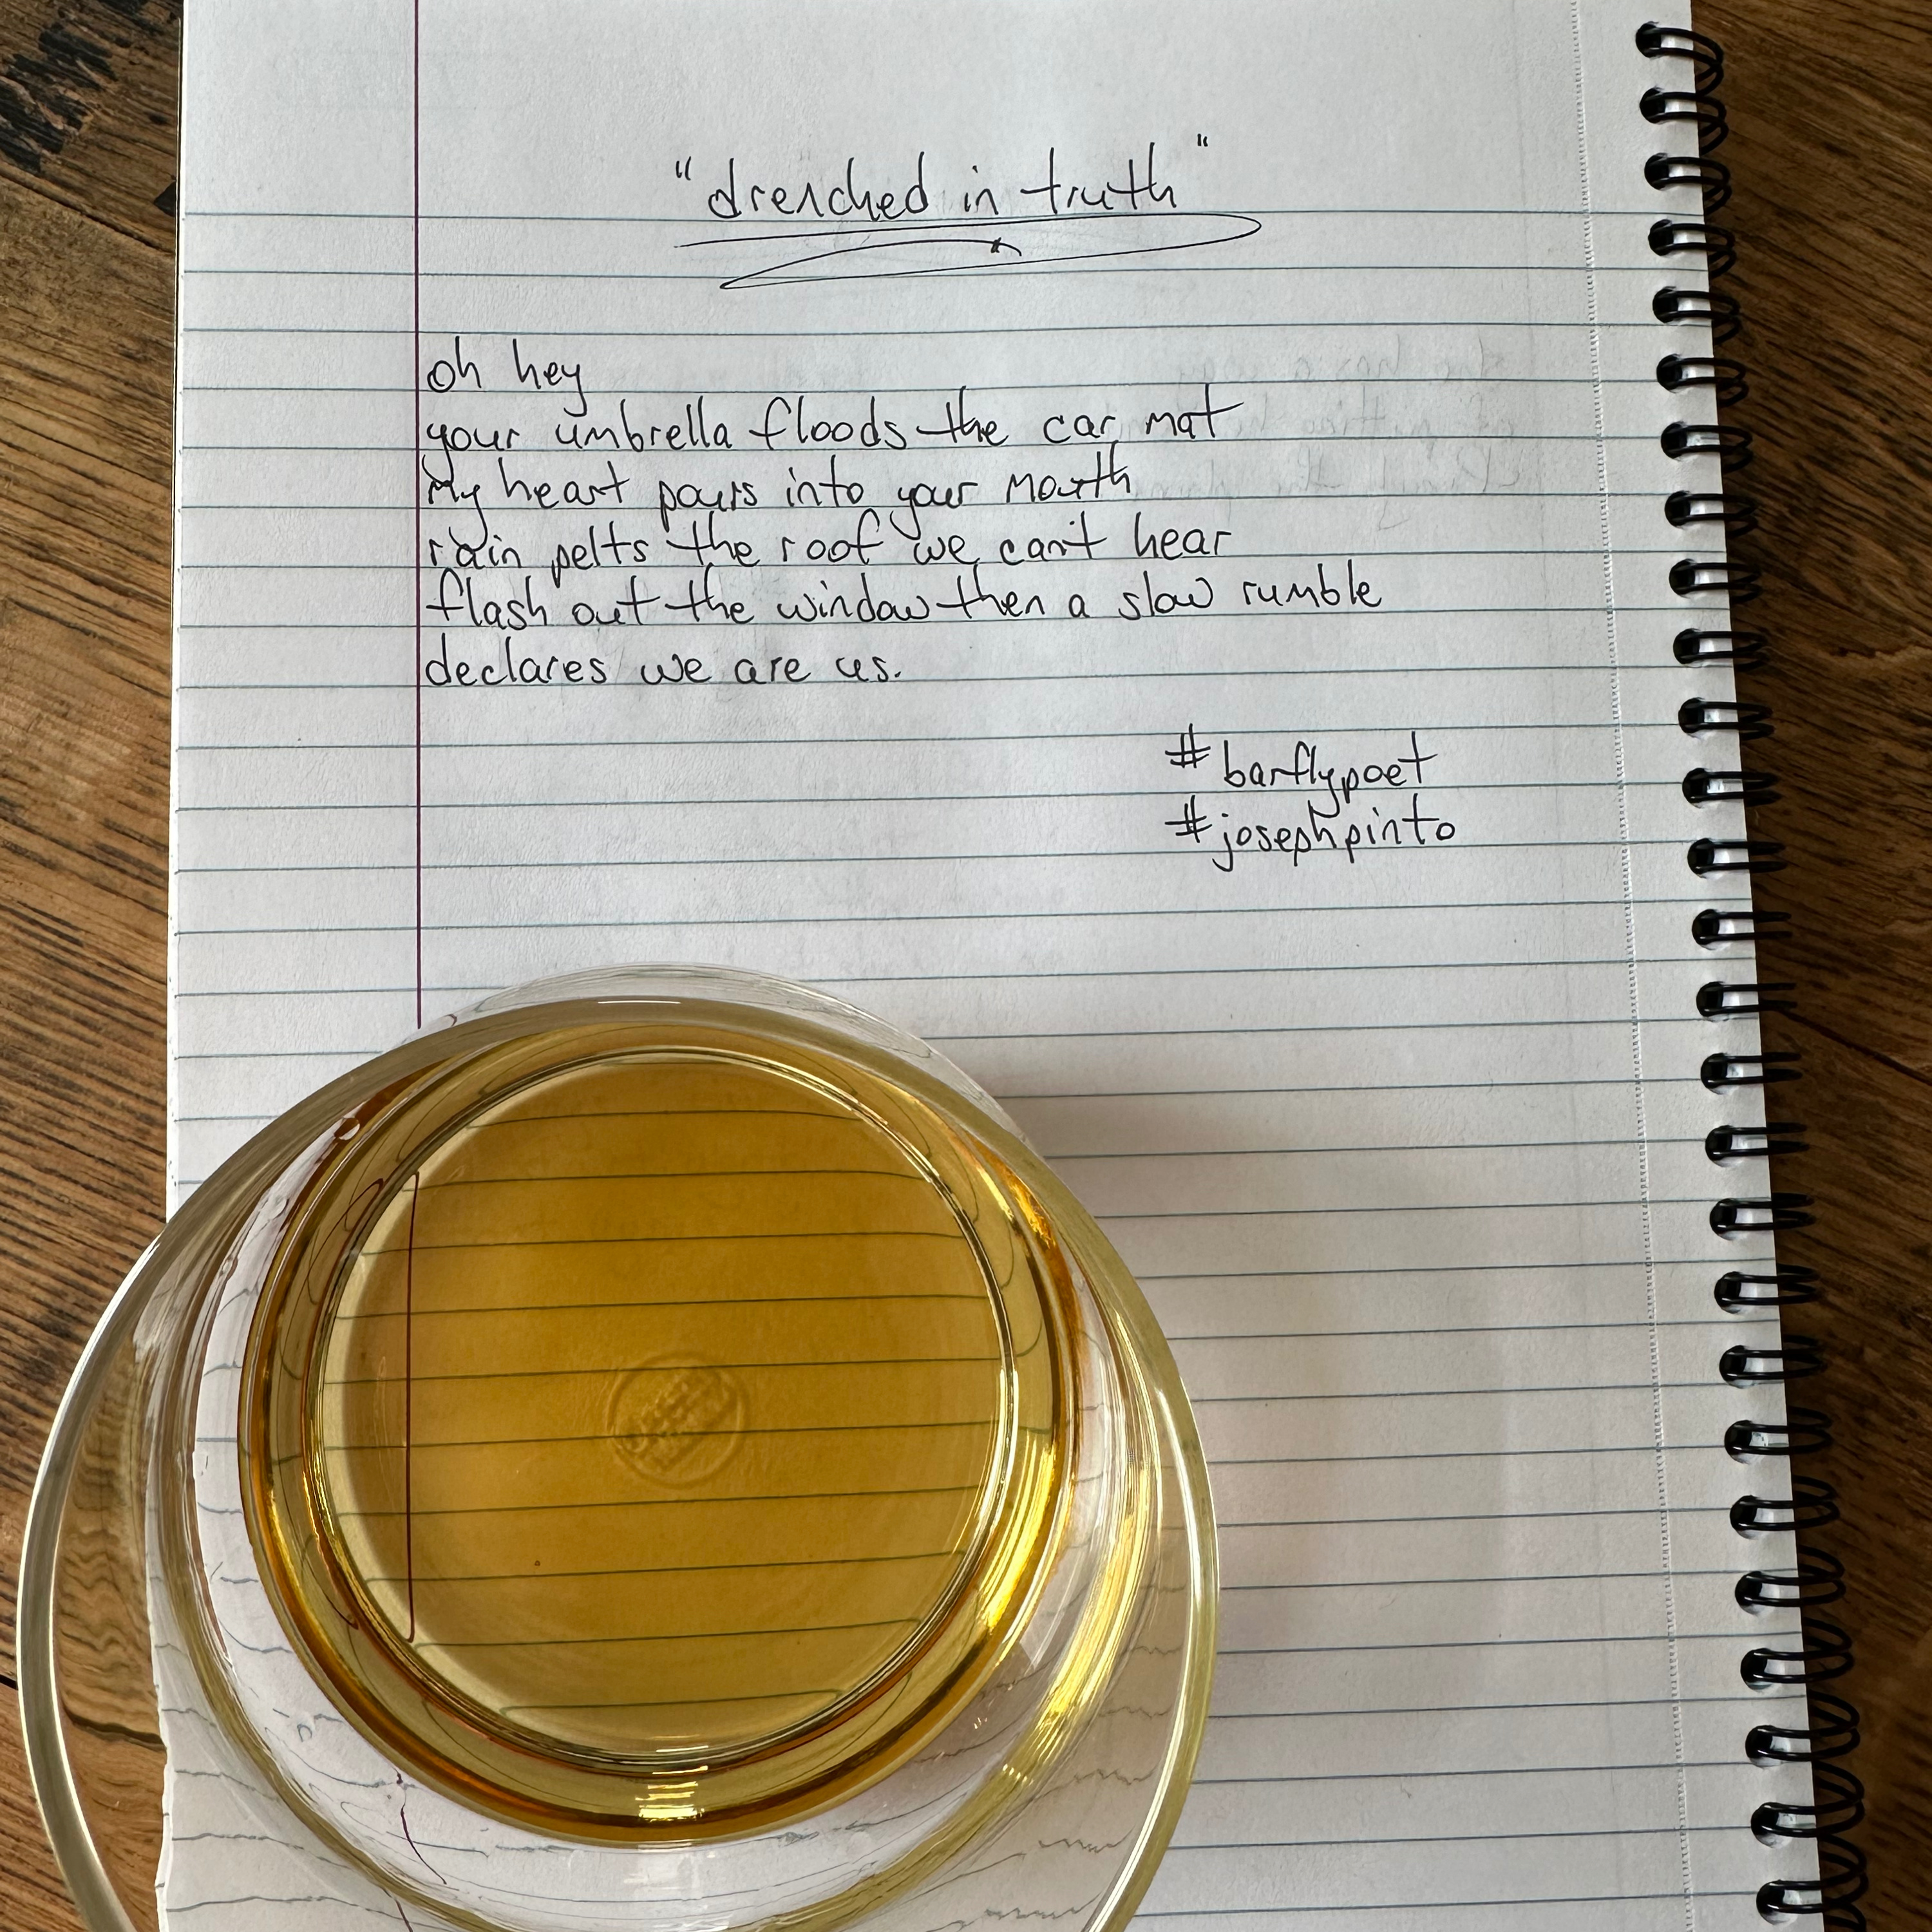 "drenched in truth"
oh hey
your umbrella floods the car mat
my heart pours into your mouth
rain pelts the roof we can't hear
flash out the window then a slow rumble
declares we are us.
#barflypoet
#josephpinto